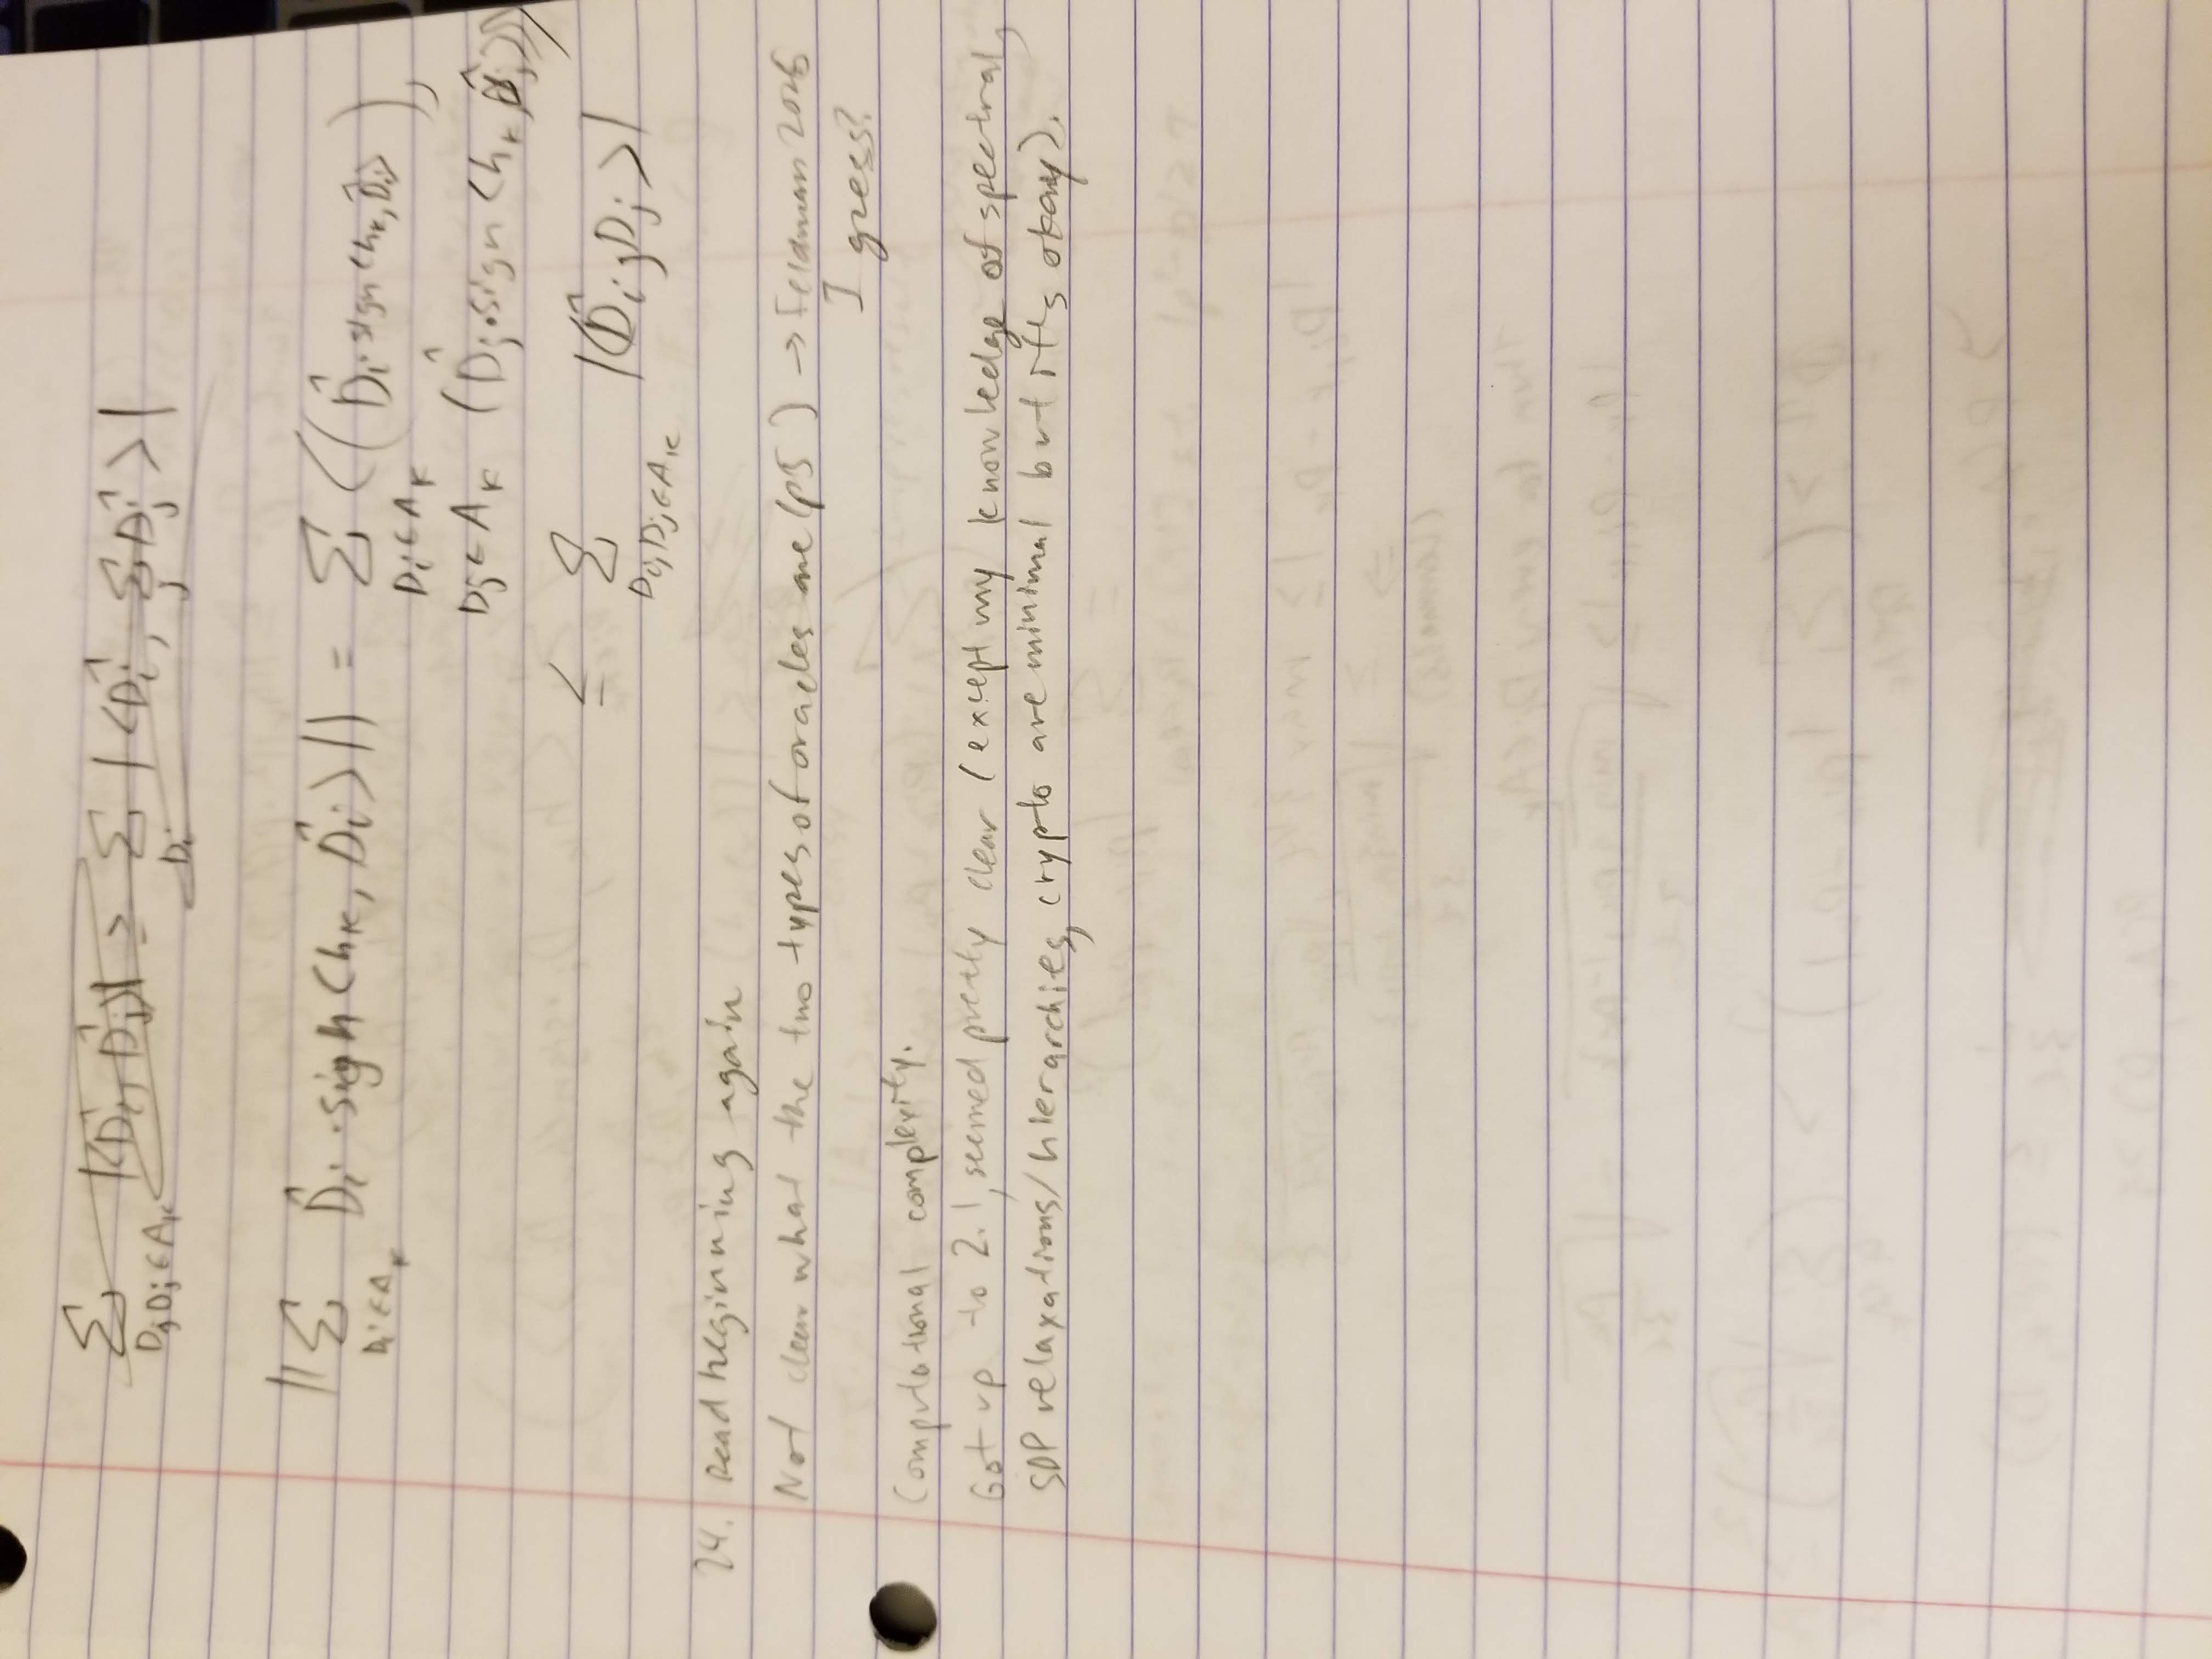 Σ |⟨D̂i, D̂j⟩| ≥ Σ |⟨D̂i, Σ D̂j⟩|
Dj Dj ∈ AK Di j
||Σ D̂i · sign⟨hK, D̂i⟩|| = Σ ⟨(D̂i · sign⟨hK, D̂i⟩),
Di ∈ AK Di ∈ AK
Dj ∈ AK (D̂j · sign⟨hK, D̂j⟩)⟩
≤ Σ |⟨D̂i, Dj⟩|
Di, Dj ∈ AK
24. Read beginning again
Not clear what the two types of oracles are (p5 ) → Feldman
I guess?
Computational complexity.
Got up to 2.1, seemed pretty clear (except my knowledge of spectral,
SDP relaxations/hierarchies, crypto are minimal but it's okay).